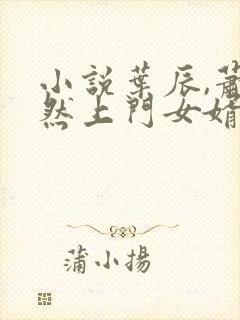 小說葉辰,蕭
然上門女婿
蒲小揚